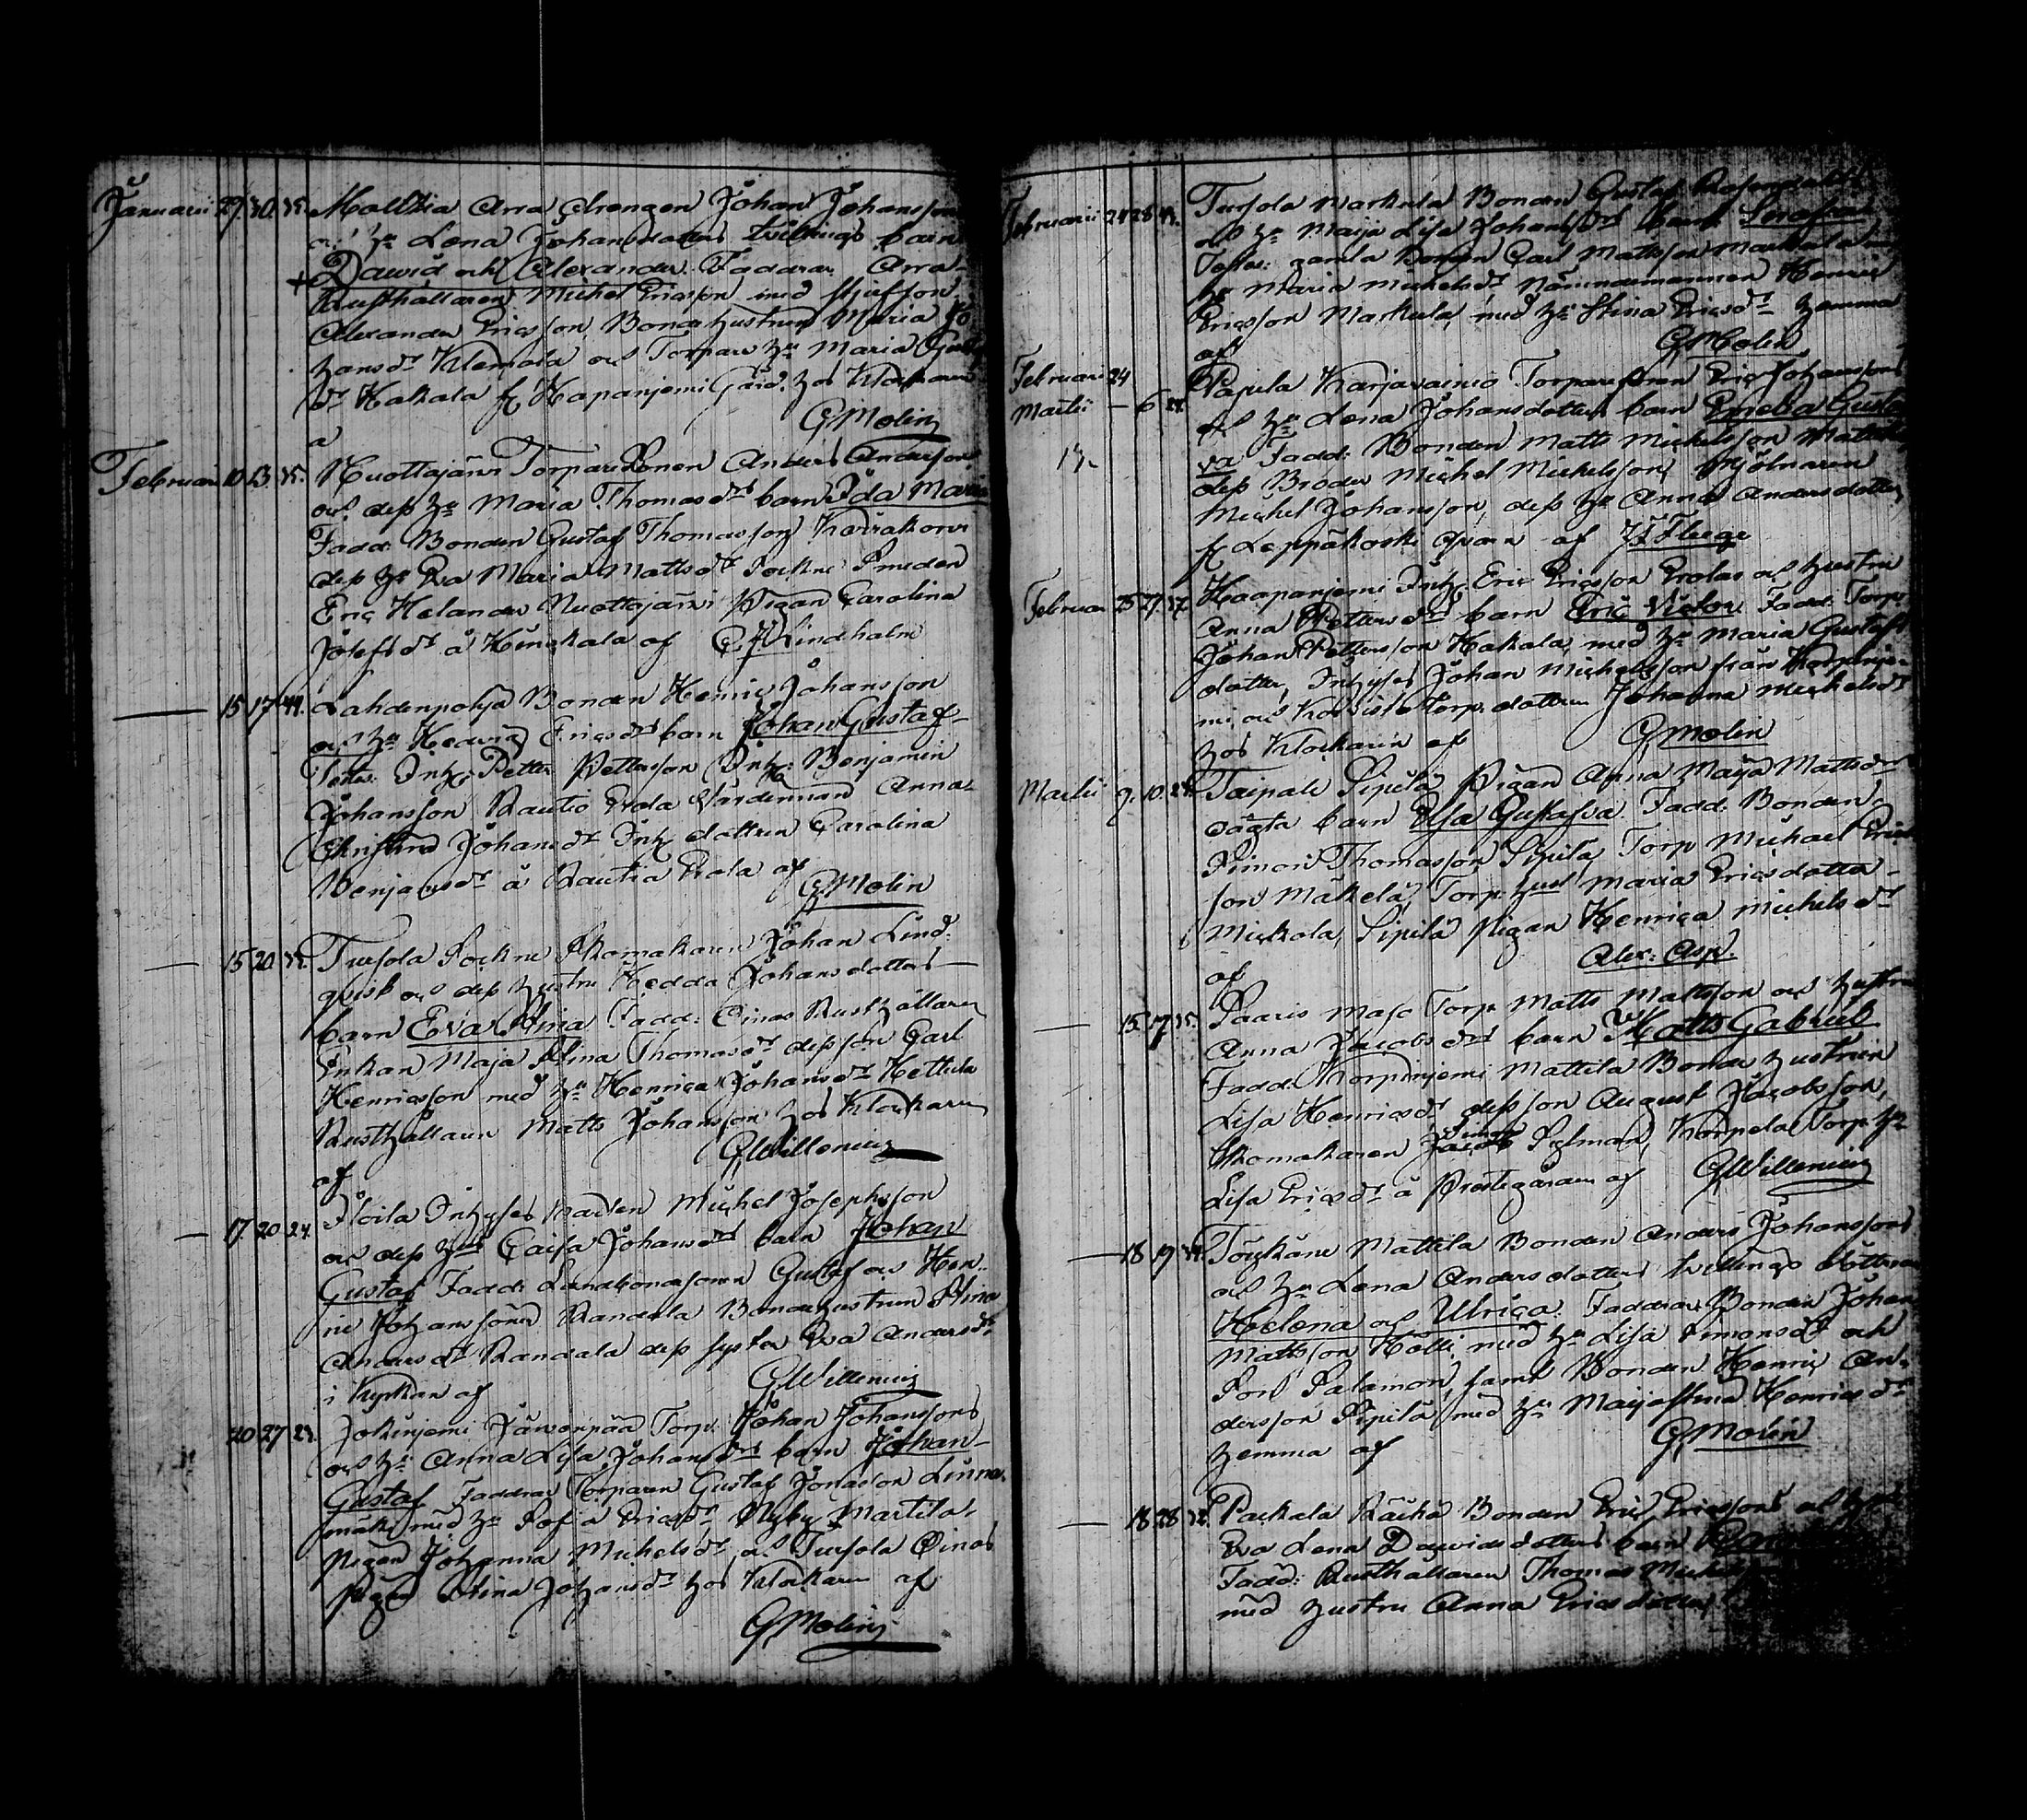 Januarii 29 30. 35. Mallkia Arra drengen Johan Johansson
och hu Lena Johansdotters tvillings barn
+ David och Alexander. Faddrar Arra
Rusthållaren Michel Ericsson med stjufson
Alexander Ericsson Bonde hustrun Maria Jo-
hansdr Klemola och Torpare hu Maria Gust
dr Hakala fr Haapanjemi Gård. hos Klockaren
af GMolin
Februari 10 13. 35. Nuottajärvi Torpare Sonen Anders Andersons
och dess hu Maria Thomasdrs barn Ida Maria
Fadd: Bonden Gustaf Thomasson Karrakorvi
dess hu Eva Maria Mattsdr Sockne Smeden
Eric Helander Nuottajärvi Pigan Carolina
Josefsdr å Hungkala af Lindholm
— 15 17 44. Lahdenpohja Bonden Henric Johansson
och hu Hedvig Ericsdrs barn Johan Gustaf
Testes: Inh: Petter Pettersson Inh: Benjamin
Johansson Rautio Erola Värdinnan Anna
Christina Johansdr Inh dottren Carolina
Benjamsdr å Rautia Erola af
GMolin
— 15 20. 35. Tursola Sockne Skomakaren Johan Lind-
qvist och dess hustru Hedda Johansdotters
barn Eva Stina Fadd: Oinas Rusthållare
Enkan Maja Stina Thomasdr dess son Carl
Henricsson med hu Henrica Johansdr Hettula
Rusthållaren Matts Johansson hos Klockaren
af GWillenius
— 17. 20 24. Sloila Inhyses Mannen Michel Josephsson
och dess hus Caisa Johansdrs barn Johan
Gustaf Fadd: Landbondesonen Gustaf och Hen-
ric Johanssöner Randala Bondehustrun Stina
Andersdr Randala dess syster Eva Andersdr
i Kyrkan af GWillenius
20 27 23. Jokinjemi Järvenpää Torp: Johan Johanssons
och hu Anna Lisa Johansdrs barn Johan
Gustaf Faddrar Torparen Gustaf Jonasson Linna-
mäki med hu Sofia Ericsdr Nyby Martila,
Pigan Johanna Michelsdr och Tursola Oinas
pigan Stina Johansdr hos Klockaren af
GMolin
Februarii 24 28 43. Tursola Markula Bonden Gustaf
och hu Maija Lisa Johansdrs barn Serafia
Testes: gamla Bonden Carl Mattsson Markula
hu Maria Michelsdr Nämndemannen Henric
Ericsson Markula, med hu Stina Ericsdr hemma
af GMolin
Februari 24
Martii — 6 24. Papila Karjavainio Torpare sonen Eric Johanssons
och hu Lena Johansdotters barn Emelia Gusta-
va Fadd: Bonden Matts Michelsson Mattila
dess Broder Michel Michelsson, Mjölnaren
Michel Johansson, dess hu Anna Andersdotter
fr Leppäkoski qvarn af
Februari 25 27 37. Haapanjemi Inh: Eric Ericsson Erolas och hustru
Anna Pettersdrs barn Eric Victor Fadd: Torp:
Johan Pettersson Hakala, med hu Maria Gustafs
dotter, Inhyses Johan Michelsson från Korpinje-
mi och Torp. dottren Johanna Michelsdr
hos Klockarin af GMolin
Martii 9. 10. 28. Taipale Sipilä Pigan Anna Maija Mattsdr
oägta barn Elsa Gustafva Fadd: Bonden
Simon Thomasson Sipilä, Torp Michael Erics
son Mäkelä, Torp: hust Maria Ericsdotter
Mickola, Sipilä Pigan Henrica Michelsdr
af Alex: Asp.
— 15. 17. 35. Paaris Maso Torp Matts Mattsson och hustru
Anna Jacobsdrs barn Matts Gabriel
Fadd: Korpinjemi Mattila Bonde hustrun
Lisa Henricsdr dess son August Jacobsson,
Skomakaren Sylman, Korpela Torp: hu
Lisa Ericsdr å Prestegården af GWillenius
— 18 19 34. Töyskäne Mattila Bonden Anders Johanssons
och hu Lena Andersdotters tvillings döttrar
Helena och Ulrica. Faddrar Bonden Johan
Mattsson Kolli med hu Lisa Simonsdr och
Son Salamon, samt Bonden Henric An-
dersson Sipilä med hu Maija Stina Henricsdr
hemma af GMolin
— 18 28 32. Packala Räihä Bonden Eric Ericssons och
Eva Lena Davidsdotters barn
Fadd: Rusthållaren Thomas Michels
med hustru Anna Ericsdotter